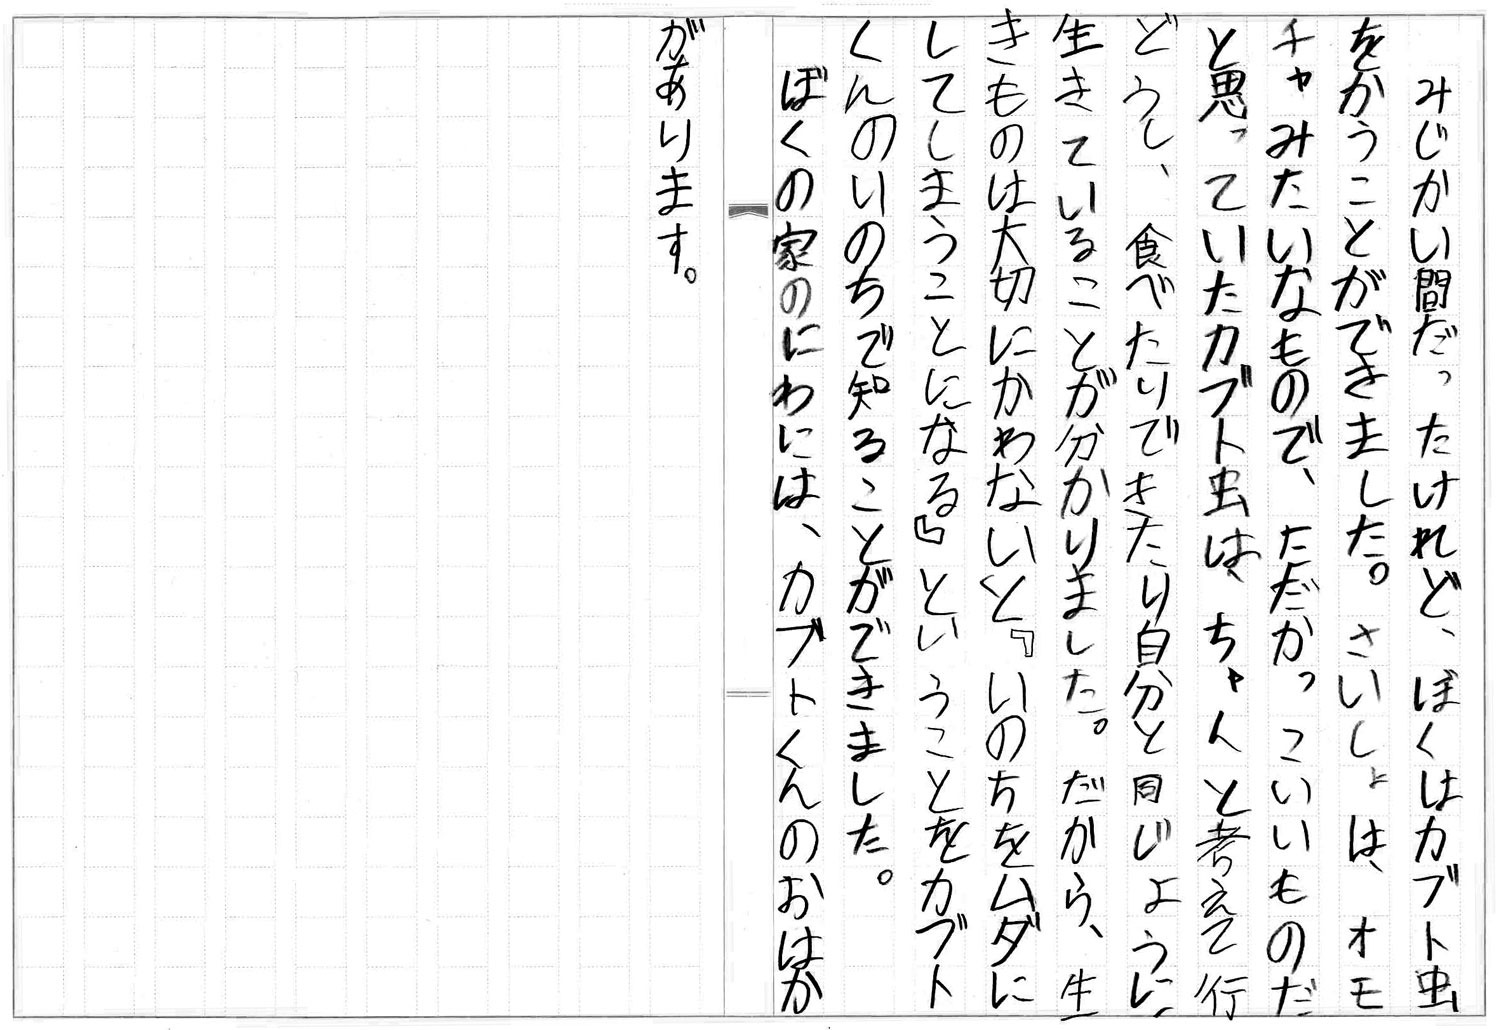 みじかい間だったけれど、ぼくはカブト虫
をかうことができました。さいしょは、オモ
チャみたいなもので、ただかっこいいものだ
と思っていたカブト虫は、ちゃんと考えて行
どうし、食べたりできたり自分と同じように、
生きていることが分かりました。だから、生
きものは大切にかわないと『いのちをムダに
してしまうことになる』ということをカブト
くんのいのちで知ることができました。
　ぼくの家のにわには、カブトくんのおはか
があります。